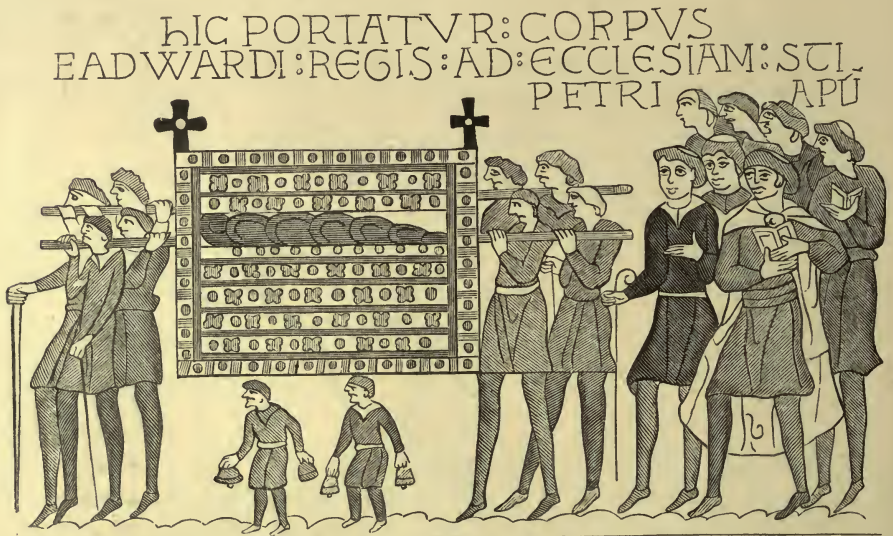 hIC PORTATVR: CORPVS
EADWARDI: REGIS: AD: ECCLESIAM: SCI
PETRI APŪ